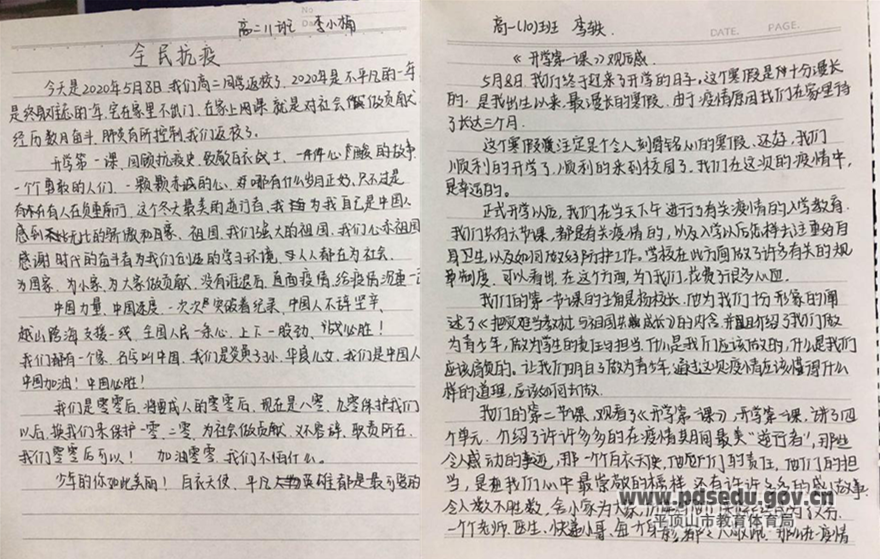 高二11班 李小楠
全民抗疫
今天是2020年5月8日,我们高二同学返校了,2020年是不平凡的一年
是终身难忘的一年,宅在家里不出门,在家上网课就是对社会做贡献
经历数月奋斗,肺炎有所控制,我们返校了。
开学第一课,回顾抗疫史,致敬白衣战士,一件件心酸的故事
一个勇敢的人们,一颗颗赤诚的心,哪有什么岁月正好,只不过是
有人在负重前行,这个冬天最美的逆行者,我为我自己是中国人
感到无比的骄傲和自豪、祖国,我们强大的祖国,我们心亦祖国
感谢时代的奋斗者为我们创造的学习环境,人人都在为社会、
为国家、为小家,为大家做贡献,没有谁退后,直面疫情,给疫情沉重一
中国力量,中国速度,一次次突破着纪录,中国人不辞坚辛,
越山跨海支援一线,全国人民一条心,上下一股劲,战必胜!
我们都有一个家,名字叫中国,我们是炎黄子孙,华夏儿女,我们是中国人
中国加油!中国必胜!
我们是零零后,将要成人的零零后,现在是八零,九零保护我们
以后,换我们来保护一零,二零,为社会做贡献,义不容辞,职责所在,
我们零零后可以!加油零零,我们不怕什么。
少年的你如此美丽!白衣天使,平凡英雄都是最可爱的
高一(10)班 李轶
DATE. PAGE.
《开学第一课》观后感
5月8日,我们终于赶来了开学的日子,这个寒假是件十分漫长
的,是我出生以来,最漫长的寒假,由于疫情原因我们在家里待
了长达三个月.
这个寒假注定是个令人刻骨铭心的寒假,还好,我们
顺利的开学了,顺利的来到校园了,我们在这次的疫情中,
是幸运的。
正式开学以后,我们在当天下午进行了有关疫情的入学教育.
我们共有六节课,都是有关疫情的,以及入学以后怎样去注重的自
身卫生,以及如何做好防护工作。学校在此方面做了许多有关的规
章制度,可以看出,在这个方面,为了我们,花费了很多心血.
我们的第一节课的主角是杨校长,他为我们十分形象的阐
述了《把灾难当教材,与祖国共成长》的内容,并且介绍了我们做
为青少年,做为学生的责任与担当,什么是我们应该做的,什么是我们
应该肩负的。让我们明白了做为青少年,通过这次疫情应该懂得什么
样的道理,应该如何去做.
我们的第二节课,观看了《开学第一课》,开学第一课,讲了四
个单元.介绍了许许多多的在疫情其间最美"逆行者",那些
令人感动的事迹,那一个个白衣天使,他们的责任,他们的担
当,是我们心中最崇敬的榜样,还有许许多多的感人故事
令人数不胜数,舍小家为大家,
一个老师,医生,快递小哥,每个身影都令人敬佩.
www.pdsedu.gov.cn
平顶山市教育体育局